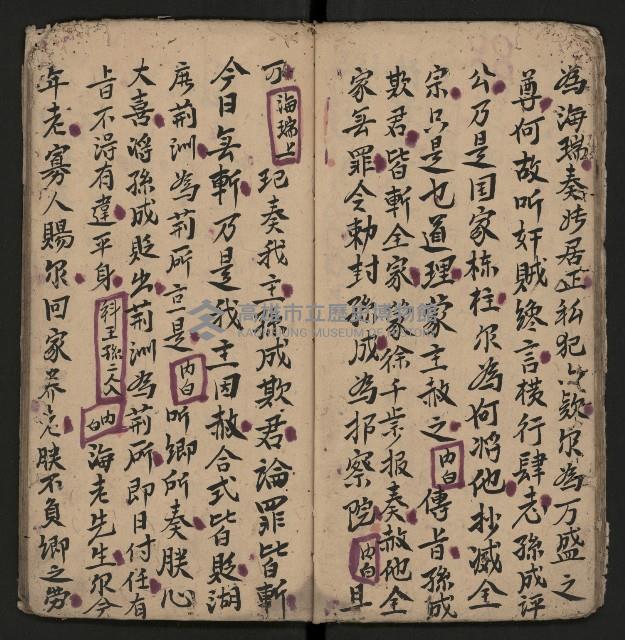 為海瑞奏張居正私犯六欵尔為万盛之
尊何故听奸賊纔言橫行肆老孫成評
公乃是国家栋柱尔為何將他抄滅全
宗只是乜道理蒙主赦之内白傳旨孫成
欺君皆斬全家徐千歲报奏赦他全
家無罪令勅封孫成為按察院内白旦
下海瑞上紀奏我主孫成欺君論罪皆斬
今日無斬乃是我主因赦合式皆貶湖
廣荊洲為荊所言一是内白听卿所奏朕心
大喜將孫成貶出荊洲為荊所即日付任有
旨不淂有違平身科王孫二人内白海老先生尔今
年老寡人賜尔回家养老朕不負卿之勞
高雄市立歷史博物館
KAOHSIUNG MUSEUM OF HISTORY